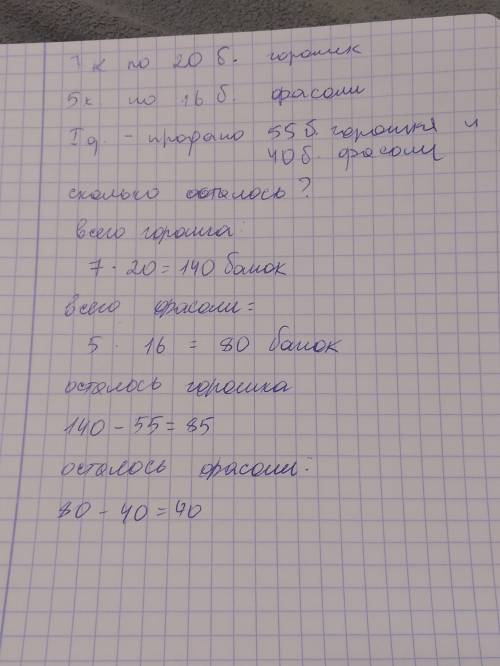 7 к по 20 б. горошек
5к. по 16 б. фасоли
I д. - продано 55 б. горошка и
40 б. фасоли
сколько осталось?
всего горошка:
7 · 20 = 140 банок
всего фасоли =
5 · 16 = 80 банок
осталось горошка
140 - 55 = 85
осталось фасоли:
80 - 40 = 40